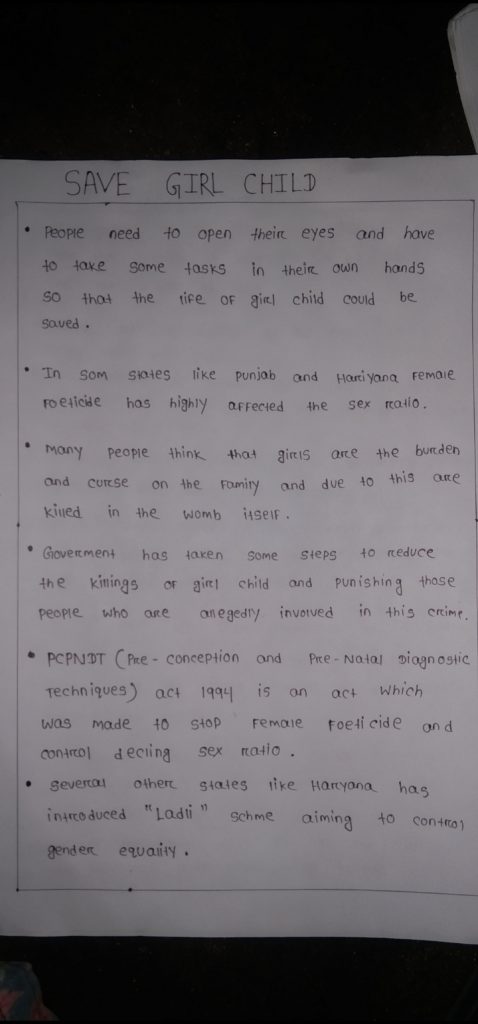 SAVE GIRL CHILD
• People need to open their eyes and have
to take some tasks in their own hands
so that the life of girl child could be
saved.
• In som states like punjab and Hariyana Female
Foeticide has highly affected the sex ratio.
• Many people think that girls are the burden
and curse on the family and due to this are
killed in the womb itself.
• Goverment has taken some steps to reduce
the killings of girl child and punishing those
people who are allegedly involved in this crime.
• PCPNDT (Pre-conception and Pre-Natal Diagnostic
Techniques) act 1994 is an act which
was made to stop Female Foeticide and
control decling sex ratio.
• Several other states like Haryana has
introduced "Ladli" schme aiming to control
gender equality.